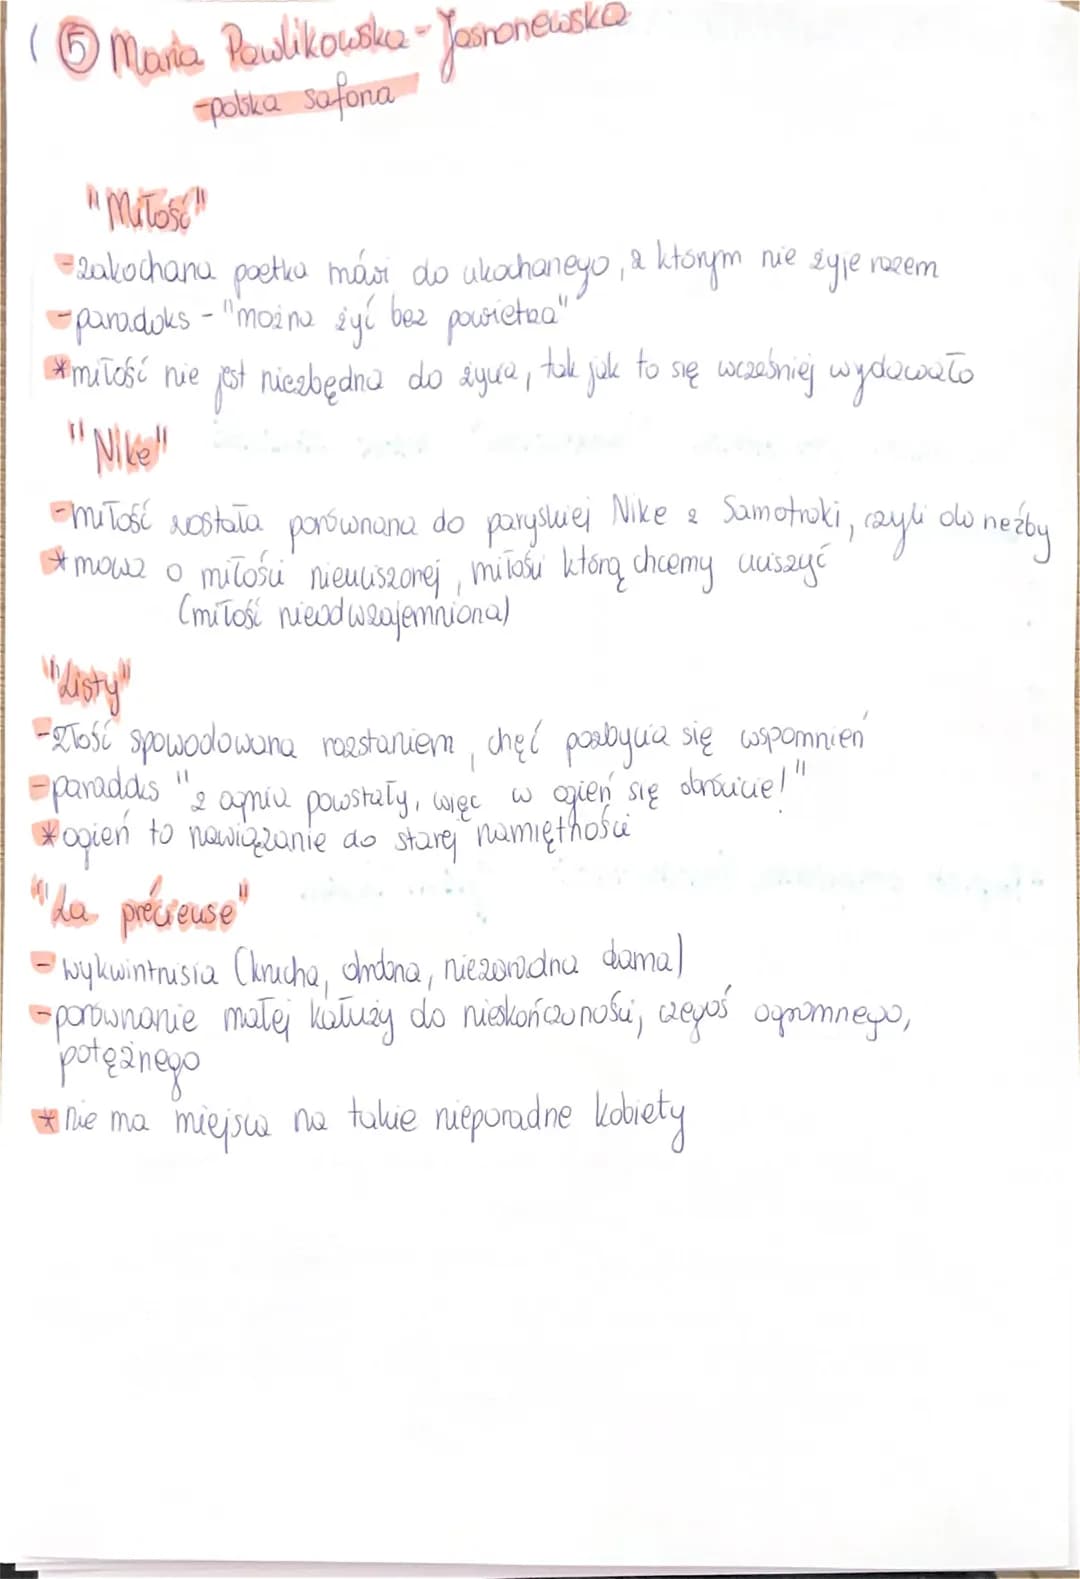 ( ⑤ Maria Pawlikowska-Jasnorzewska
-polska safona
"Miłość"
-zakochana poetka mówi do ukochanego, z którym nie żyje razem
-paradoks - "można żyć bez powietrza"
*miłość nie jest niezbędna do życia, tak jak to się wcześniej wydawało
"Nike"
-miłość została porównana do paryskiej Nike z Samotraki, czyli do rzeźby
*mowa o miłości nieuciszonej, miłości którą chcemy uciszyć
(miłość nieodwzajemniona)
"Listy"
-złość spowodowana rozstaniem, chęć pozbycia się wspomnień
-paradoks "z ognia powstały, więc w ogień się obrócicie!"
*ogień to nawiązanie do starej namiętności
"La précieuse"
-wykwintnisia (krucha, drobna, niezaradna dama)
-porównanie małej kałuży do nieskończoności, czegoś ogromnego,
potężnego
*nie ma miejsca na takie nieporadne kobiety